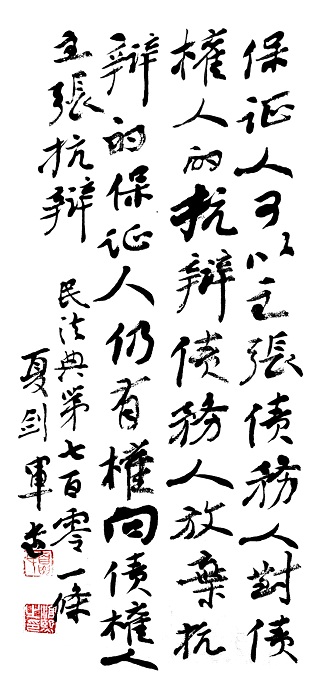 保证人可以主張债務人對债
權人的抗辯债務人放棄抗
辯的保证人仍有權向债權人
主張抗辯 民法典第七百零一條
夏剑軍书